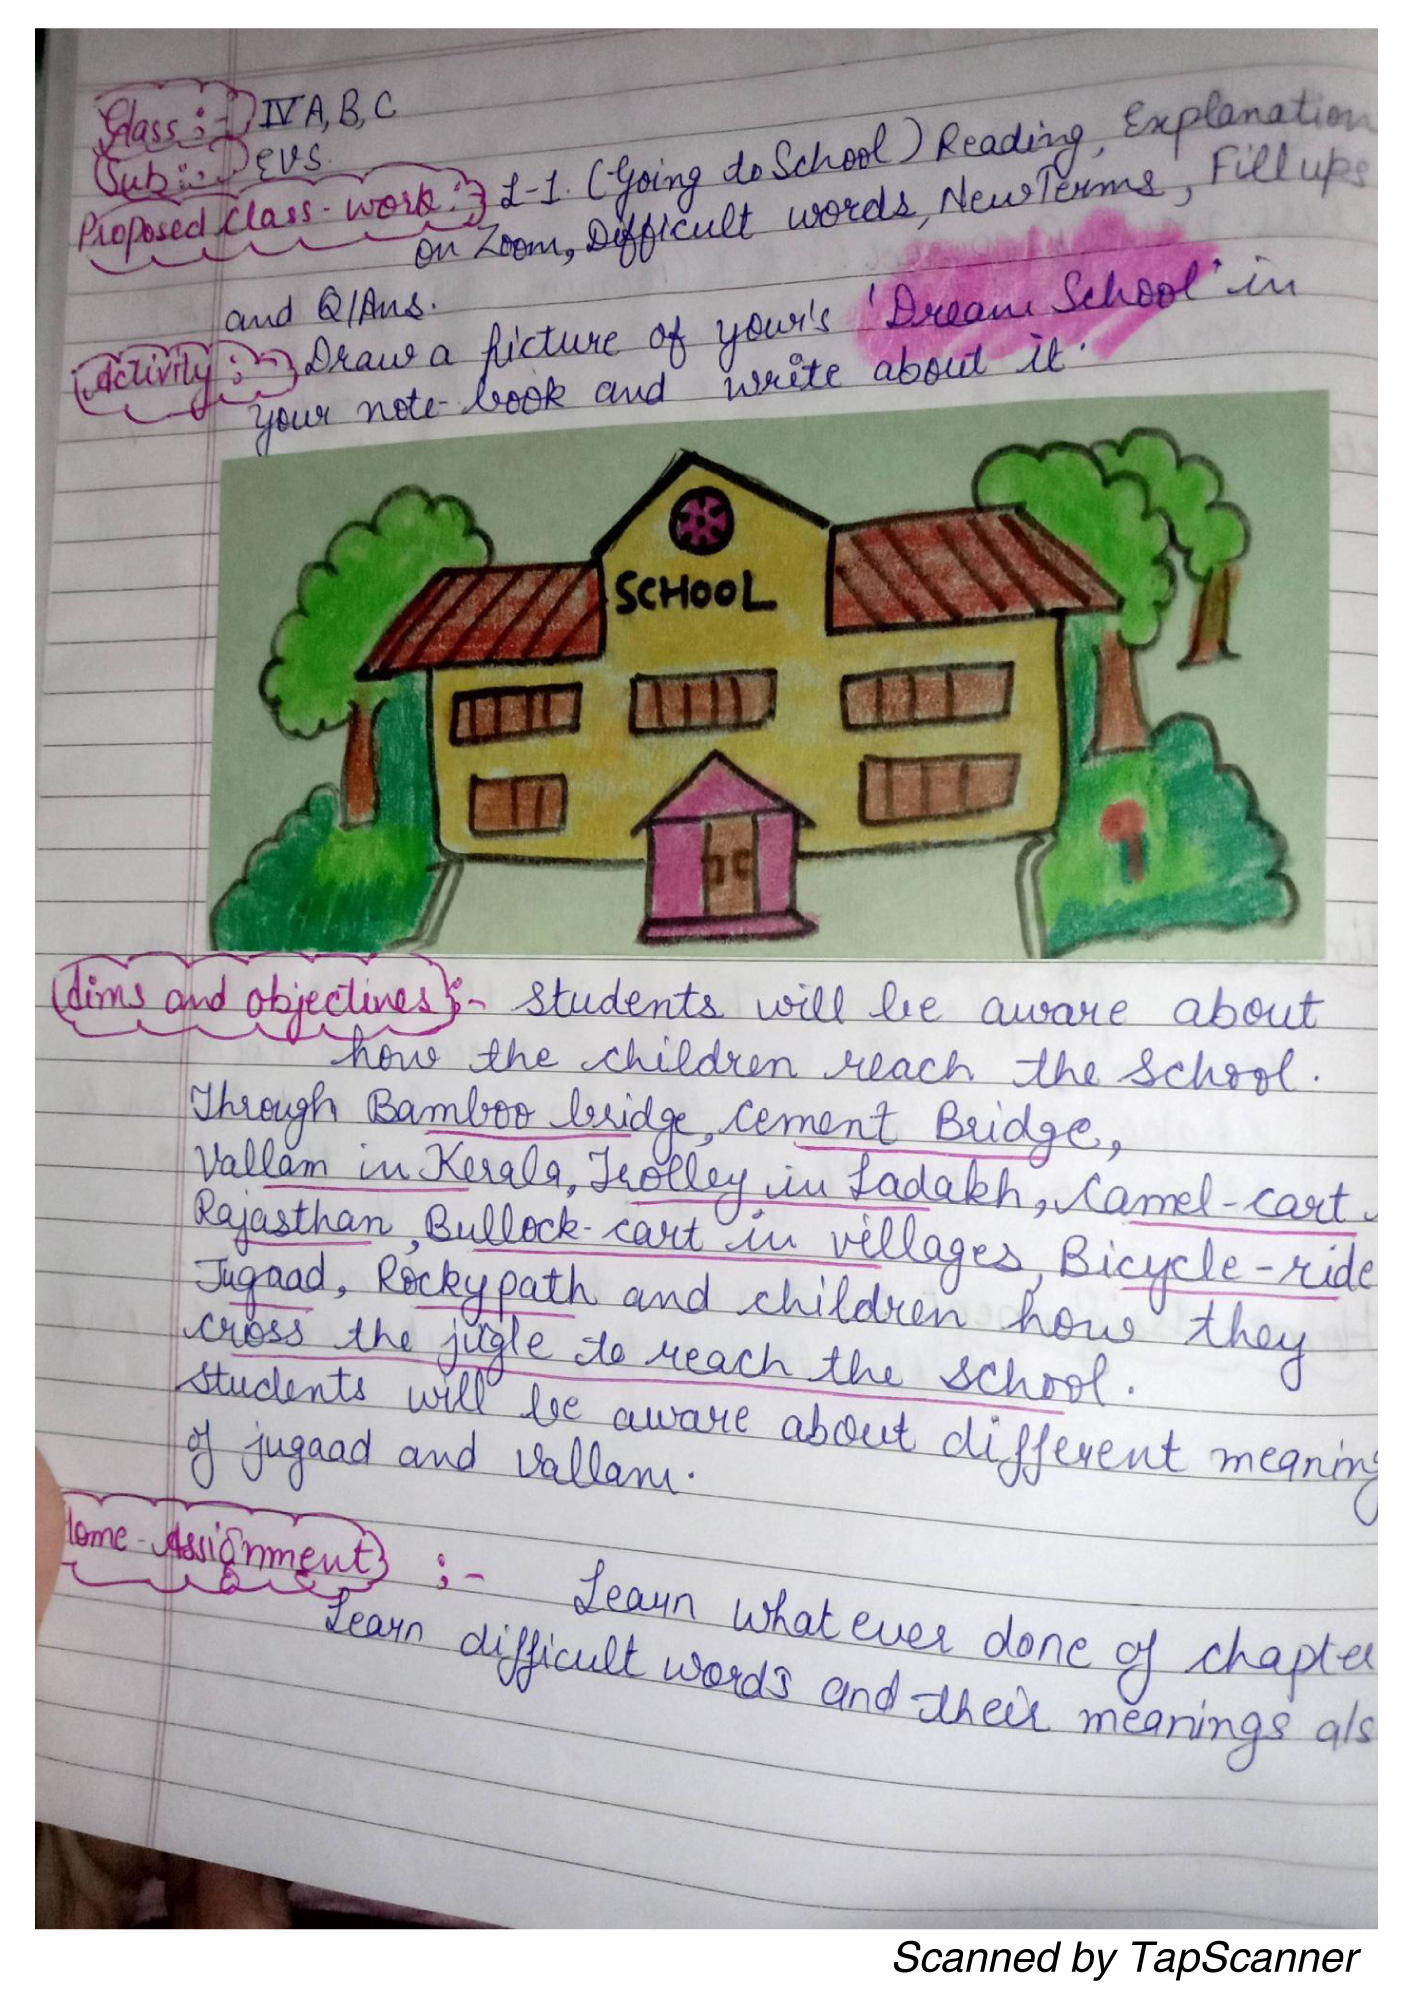 Class :- IV A, B, C
Sub :- EVS.
Proposed Class-work :- L-1. (Going to School) Reading, Explanation
on Zoom, Difficult words, New Terms, Fill ups
and Q/Ans.
Activity :- Draw a picture of your's 'Dream School' in
your note-book and write about it.
SCHOOL
Aims and objectives :- Students will be aware about
how the children reach the school.
Through Bamboo bridge, Cement Bridge,
Vallam in Kerala, Trolley in Ladakh, Camel-cart
Rajasthan, Bullock-cart in villages, Bicycle-ride
Jugaad, Rocky path and children how they
cross the jugle to reach the school.
Students will be aware about different meaning
of jugaad and Vallam.
Home-Assignment :- Learn what ever done of chapter
Learn difficult words and their meanings als
Scanned by TapScanner